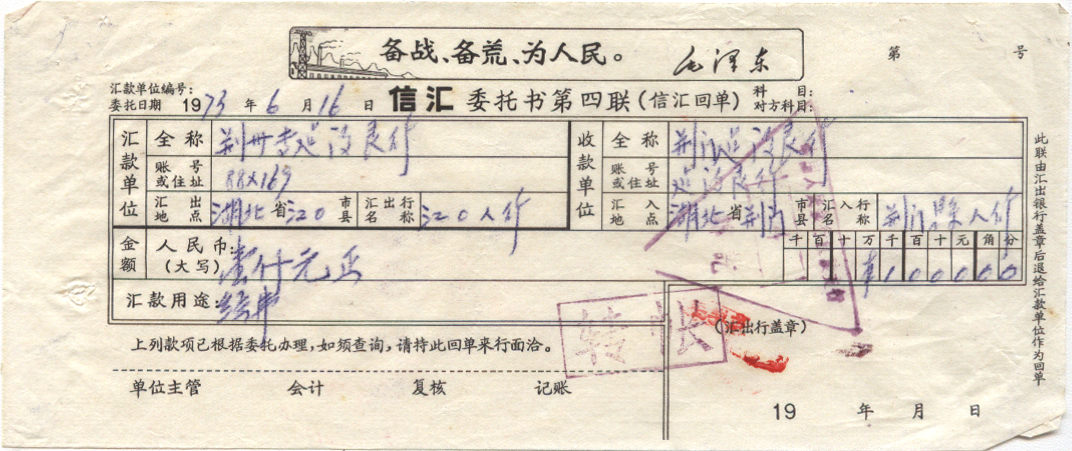 备战、备荒、为人民。 毛泽东
第 号
汇款单位编号:
委托日期 1973 年 6 月 16 日 信汇 委托书第四联(信汇回单) 科 目:
对方科目:
汇款单位 全称 荆州 建设银行 收款单位 全称 荆门建设银行
账号或住址 88×169 账号或住址 建设银行
汇出地点 湖北省江0 市县 汇出行名称 江0人行 汇入地点 湖北省荆门 市县 汇入行名称 荆门縣人行
金额 人民币:(大写) 壹仟元正 千百十万千百十元角分
¥100000
汇款用途: 经费
转讫
(汇出行盖章)
上列款项已根据委托办理,如须查询,请持此回单来行面洽。
单位主管 会计 复核 记账
19 年 月 日
此联由汇出银行盖章后退给汇款单位作为回单